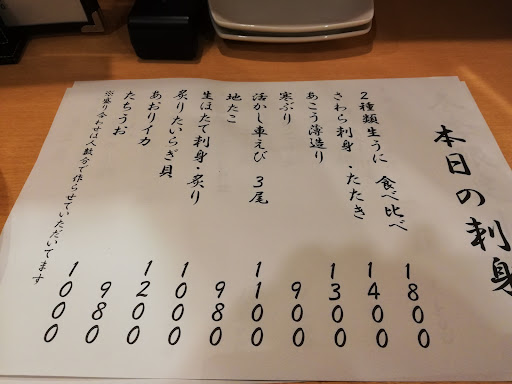 本日の刺身
2種類生うに 食べ比べ 1800
さわら刺身・たたき 1400
あこう薄造り 1300
寒ぶり 900
活かし車えび 3尾 1100
地たこ 980
生ほたて刺身・炙り 1000
炙りたいらぎ貝 1200
あおりイカ 980
たちうお 1000
※盛り合わせは人数合で作らせていただいてます